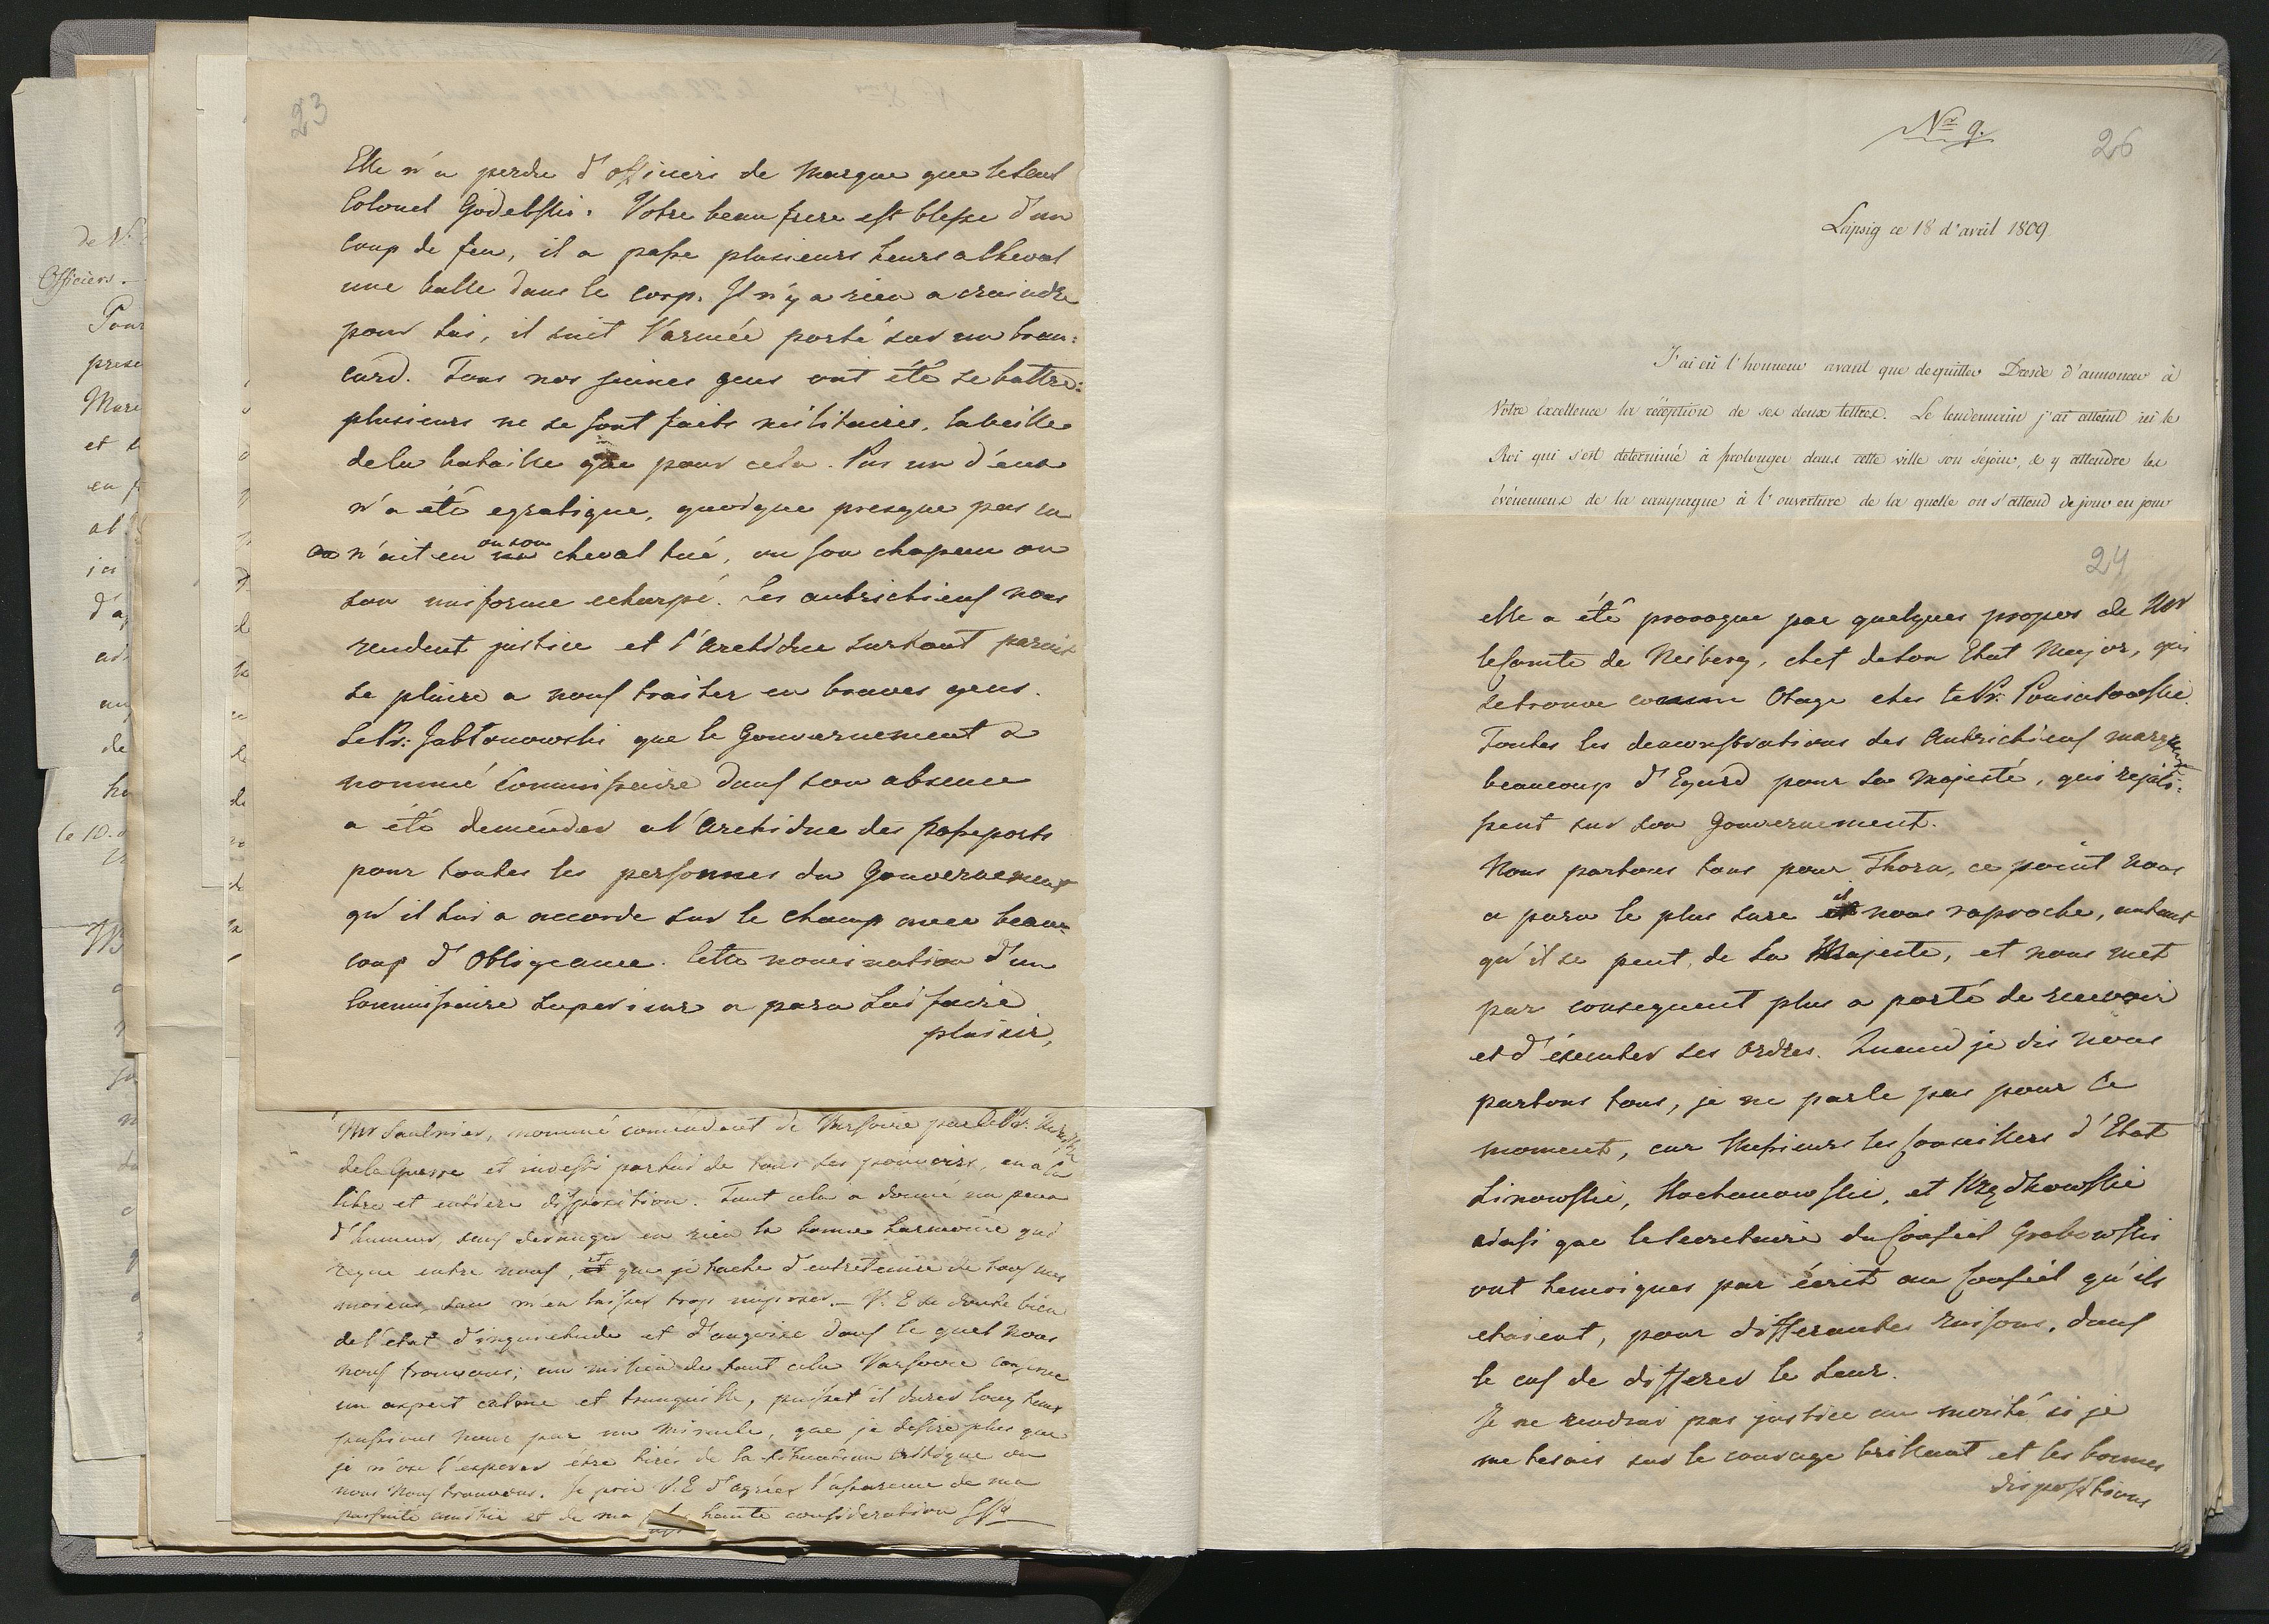 23
Elle n'a perdu d'officiers de marque que le seul
Colonel Godebski. Votre beau frere est blesse d'un
coup de feu, il a passe plusieurs heurs a Cheval
une balle dans le corp. Il n'y a rien a craindre
pour lui, il suit l'armée porté sur un bran:
card. Tous nos jeunes gens ont été se battre:
plusieurs ne se sont faits militaires, la veille
de la bataille que pour cela. Pas un d'eux
n'a été egratigne, quoique presque pas un
n'ait eu ou son cheval tué, ou son chapeau ou
son uniforme echarpé. Les autrichiens nous
rendent justice et l'Archiduc surtout parait
se plaire a nous traiter en braves gens.
Le Pr: Jabłonowski que le Gouvernement a
nommé Commissaire dans son absence
a été demender a l'Archiduc des passeports
pour toutes les personnes du Gouvernement
qu'il lui a accorde sur le champ avec beau-
coup d'Obligeance. Cette nomination d'un
Commissaire Superieur a paru lui faire
plaisir,
Mr Saulnier, nommé comendant de Varsovie par le Pr: Ministre
de la Guerre et investi par lui de tous ses pouvoirs, en a la
libre et entiere disposition. Tout cela a donné un peu
d'humeur, sans deranger en rien la bonne harmonie qui
regne entre nous, et que je tache d'entretenire de tous mes
moiens, sans m'en laisser trop imposer. — V. E se doute bien
de l'etat d'inquietude et d'angoise dans le quel nous
nous trouvons; au milieu de tout cela Varsovie conserve
un aspect calme et tranquille, puisset il durer long tems
pussions nous par un miracle, que je desire plus que
je n'ose l'esperer être tirés de la situation critique ou
nous nous trouvons. Je prie V. E d'agréer l'assurence de ma
parfaite amitié et de ma plus haute consideration
Nr 9.
26
Leipsig ce 18 d'avril 1809
J'ai eû l'honneur avant que de quitter Dresde d'annoncer à
Votre Excellence la réception de ses deux lettres. Le lendemain j'ai atteind ici le
Roi qui s'est determiné à prolonger dans cette ville son séjour, & y attendre les
événemens de la campagne à l'ouverture de la quelle on s'attend de jour en jour
24
elle a été provoque par quelques propos de Mr
le Comte de Neiberg, chef de son Etat Major, qui
se trouve comme Otage chez le Pr: Poniatowski.
Toutes les demonstrations des Autrichiens marquent
beaucoup d'Egard pour Sa Majesté, qui rejali:
ssent sur son Gouvernement.
Nous partons tous pour Thorn, ce point nous
a paru le plus sure il nous raproche, autant
qu'il se peut, de Sa Majeste, et nous met
par consequent plus a porté de recevoir
et d'éxecuter ses Ordres. Quand je dis nous
partons tous, je ne parle pas pour le
moment, car Messieurs les Conseillers d'Etat
Linowski, Kochanowski, et Wędkowski
ainsi que le Secretaire du Conseil Grabowski
ont temoignes par écrit au Conseil qu'ils
etaient, pour differantes raisons, dans
le cas de differer le leur.
Je ne rendrai pas justice au merité si je
me tesais sur le courage brillant et les bonnes
dispositions